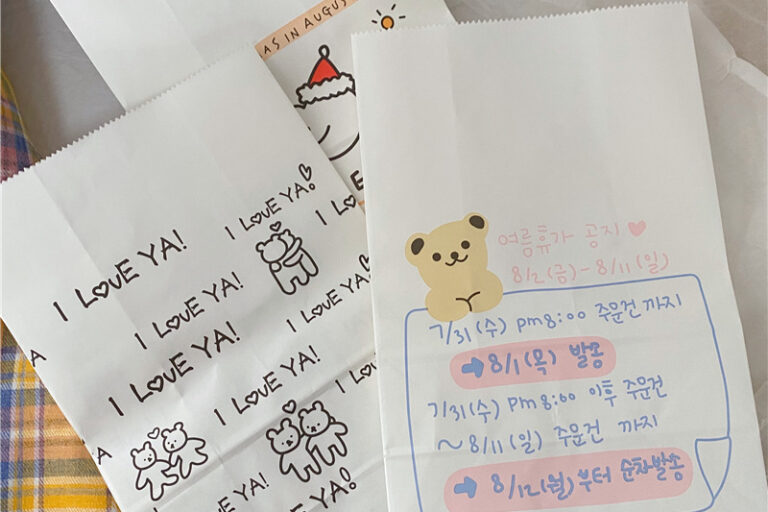 AS IN AUGUS
I LOVE YA!
I LOVE YA!
I LO
I LOVE YA!
I LOVE YA!
I LOVE YA!
I LOVE YA!
I LOV
A
A
YA!
I LOVE YA!
여름휴가 공지
8/2(금)-8/11(일)
7/31(수) pm8:00 주문건 까지
→8/1(목) 발송
7/31(수) pm8:00 이후 주문건
~8/11(일) 주문건 까지
→ 8/12(월)부터 순차발송